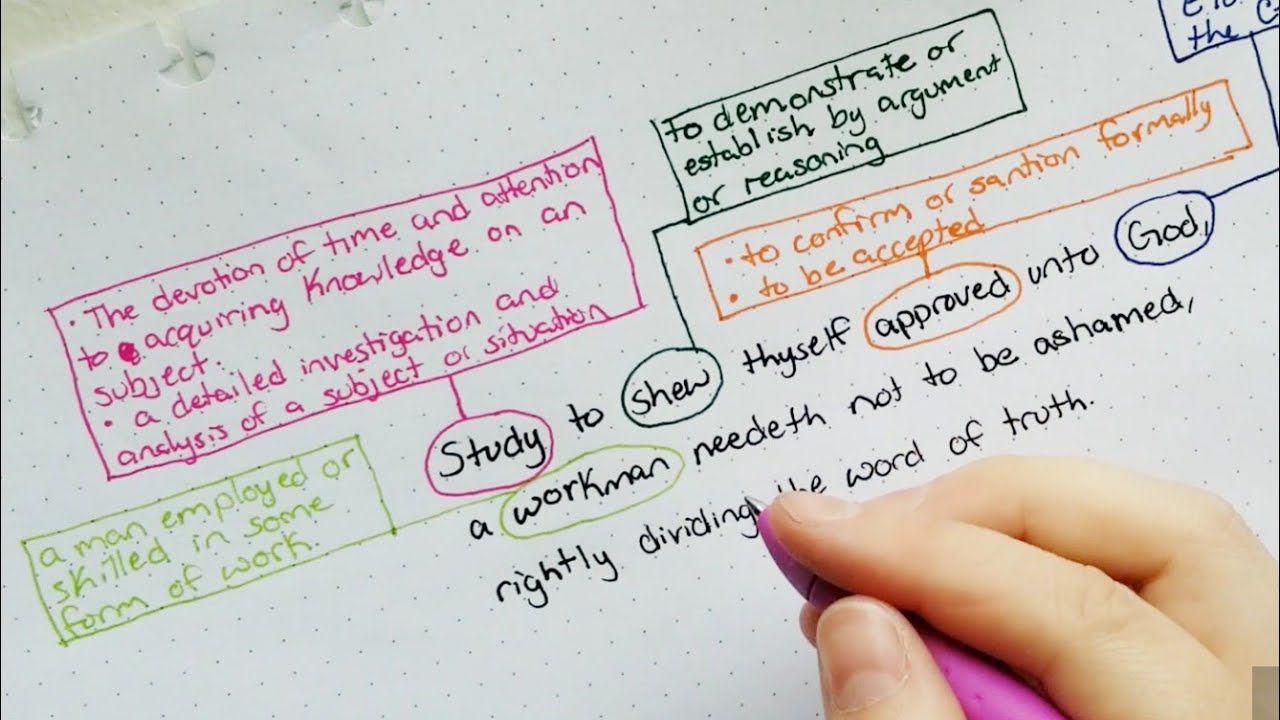 the
to demonstrate or
establish by argument
or reasoning
• to confirm or santion formally
• to be accepted
• The devotion of time and attention
to acquiring Knowledge on an
subject.
• a detailed investigation and
analysis of a subject or situation
Study to shew thyself approved unto God,
a workman needeth not to be ashamed,
rightly dividing the word of truth.
a man employed or
skilled in some
form of work.